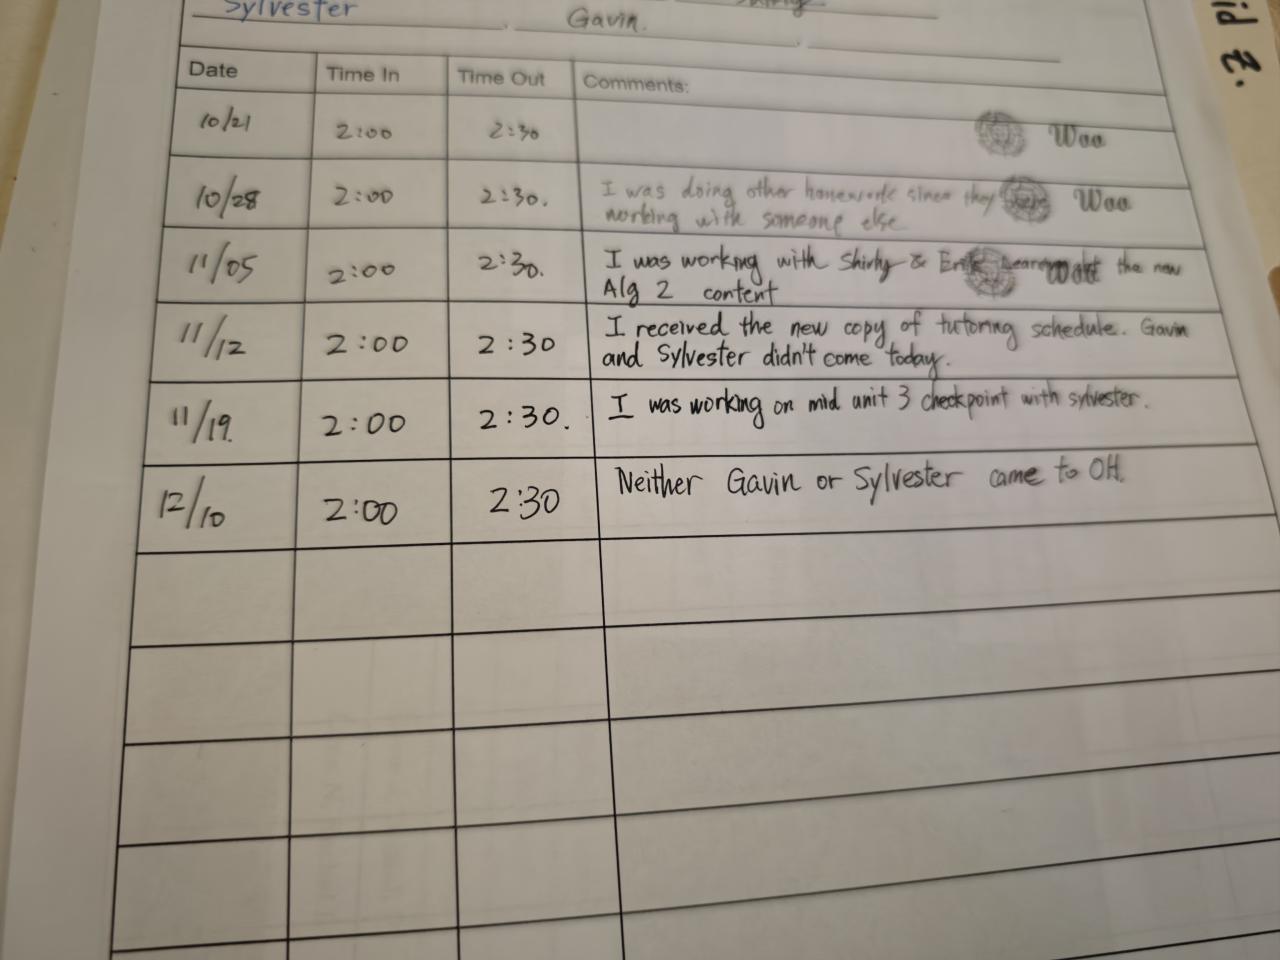 Sylvester
Gavin.
id Z.
Date Time In Time Out Comments:
10/21 2:00 2:30 Woo
10/28 2:00 2:30. I was doing other homework since they were Woo
working with someone else
11/05 2:00 2:30. I was working with Shirly & Erik the new
Alg 2 content
11/12 2:00 2:30 I received the new copy of tutoring schedule. Gavin
and Sylvester didn't come today.
11/19. 2:00 2:30. I was working on mid unit 3 checkpoint with sylvester.
12/10 2:00 2:30 Neither Gavin or Sylvester came to OH.